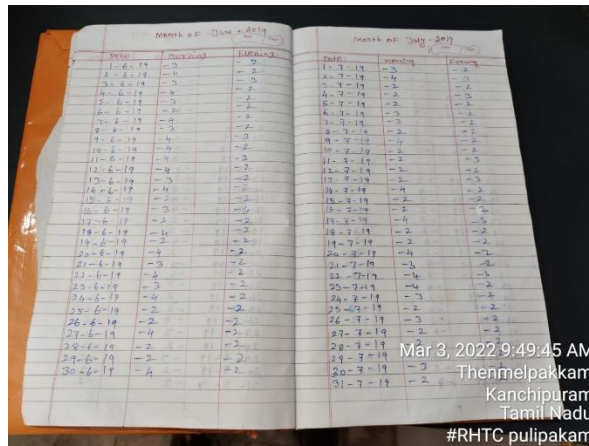 Month of June - 2019
Date Morning Evening
1-6-19 -3 -2
2-6-19 -2
3-6-19 -3 -3
4-6-19 -4 -2
5-6-19 -3 -2
6-6-19 -2 -2
7-6-19 -4 -2
8-6-19 -3 -2
9-6-19 -4 -3
10-6-19 -4 -2
11-6-19 -2
12-6-19 -4 -2
13-6-19 -3 -2
14-6-19 -4 -2
15-6-19 -2
16-6-19 -3
17-6-19 -2
18-6-19 -2
19-6-19 -2 -2
20-6-19 -4 -2
21-6-19 -3 -2
22-6-19 -4 -2
23-6-19 -3 -2
24-6-19 -4 -2
25-6-19 -2 -2
26-6-19 -2 -2
27-6-19 -4 -2
28-6-19 -2 -2
29-6-19 -2 -2
30-6-19 -4 -2
Month of July - 2019
Date Morning Evening
1-7-19 -3 -2
2-7-19 -4 -3
3-7-19 -2 -2
4-7-19 -2 -3
5-7-19 -2 -2
6-7-19 -3 -2
7-7-19 -3 -2
8-7-19 -2 -2
9-7-19 -4 -2
10-7-19 -2 -2
11-7-19 -2 -3
12-7-19 -2 -2
13-7-19 -2 -3
14-7-19 -4 -2
15-7-19 -2 -2
16-7-19 -2
17-7-19 -4 -3
18-7-19 -2 -2
19-7-19 -2 -2
20-7-19 -4 -2
21-7-19 -3 -2
22-7-19 -4 -3
23-7-19 -4 -2
24-7-19 -3 -2
25-7-19 -2 -2
26-7-19 -3 -2
27-7-19 -2 -2
28-7-19 -2
29-7-19 -2
30-7-19 -3
31-7-19 -2
Mar 3, 2022 9:49:45 AM
Thenmelpakkam
Kanchipuram
Tamil Nadu
#RHTC pulipakam